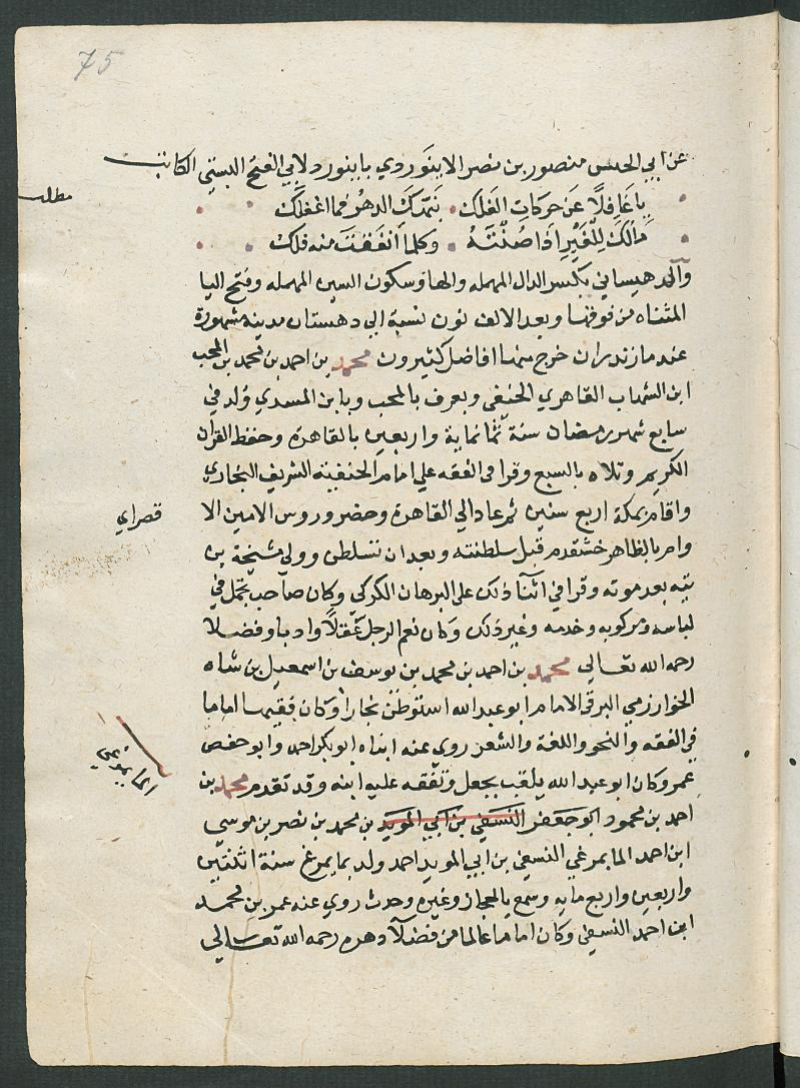 75
عن ابي الحسن منصور بن نصر الابنوردي بابنورد لابي الفتح البستي الكاتب
مطلب
يا غافلًا عن حركات الفلك نبهك الدهر فما اغفلك
مالك للغير اذا صنته وكلما انفقت منه فلك
والدهستاني بكسر الدال المهمله والهاء وسكون السين المهمله وفتح اليا
المثناه من فوقها وبعد الالف نون نسبة الي دهستان مدينه مشهورة
عند مازندران خرج منها افاضل كثيرون محمد بن احمد بن محمد بن المحب
ابن الشهاب القاهري الحنفي ويعرف بالمحب وبابن المسدي ولد في
سابع شهر رمضان سنة ثمانماية واربعين بالقاهرة وحفظ القران
الكريم وتلاه بالسبع وقرا في الفقه علي امام الحنفيه الشريف البخاري
واقام بمكة اربع سنين ثم عاد الي القاهرة وحضر دروس الامين الا
قصراي
وامر بالظاهر خشقدم قبل سلطنته وبعد ان تسلطن وولي مشيخة تر
بته بعد موته وقرا في اثنا ذلك علي البرهان الكركي وكان صاحب تجمل في
لباسه ومركوبه وخدمه وغير ذلك وكان نعم الرجل عقلًا وادبا وفضلا
رحمه الله تعالي محمد بن احمد بن محمد بن يوسف بن اسمعيل بن شاه
الخوارزمي البرقي الامام ابو عبد الله استوطن بخارا وكان فقيها اماما
في الفقه والنحو واللغة والشعر روي عنه ابناه ابو بكر احمد وابو حفص
المايمرغي
عمر وكان ابو عبد الله يلقب بجعل وتفقه عليه ابنه وقد تقدم محمد بن
احمد بن محمود ابو جعفر النسفي بن ابي المويد بن محمد بن نصر بن موسي
ابن احمد المايمرغي النسفي بن ابي المويد احمد ولد بمايمرغ سنة اثنتين
واربعين واربع مايه وسمع بالحجاز وغيره وحدث روي عنه عمر بن محمد
ابن احمد النسفي وكان اماما عالما من فضلآ دهره رحمه الله تعالي